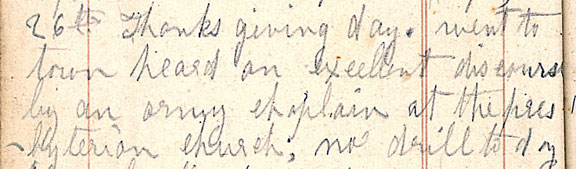 26th Thanks giving day. went to
town heard an excellent discours
by an army chaplain at the pres
-byterian church, no drill to day